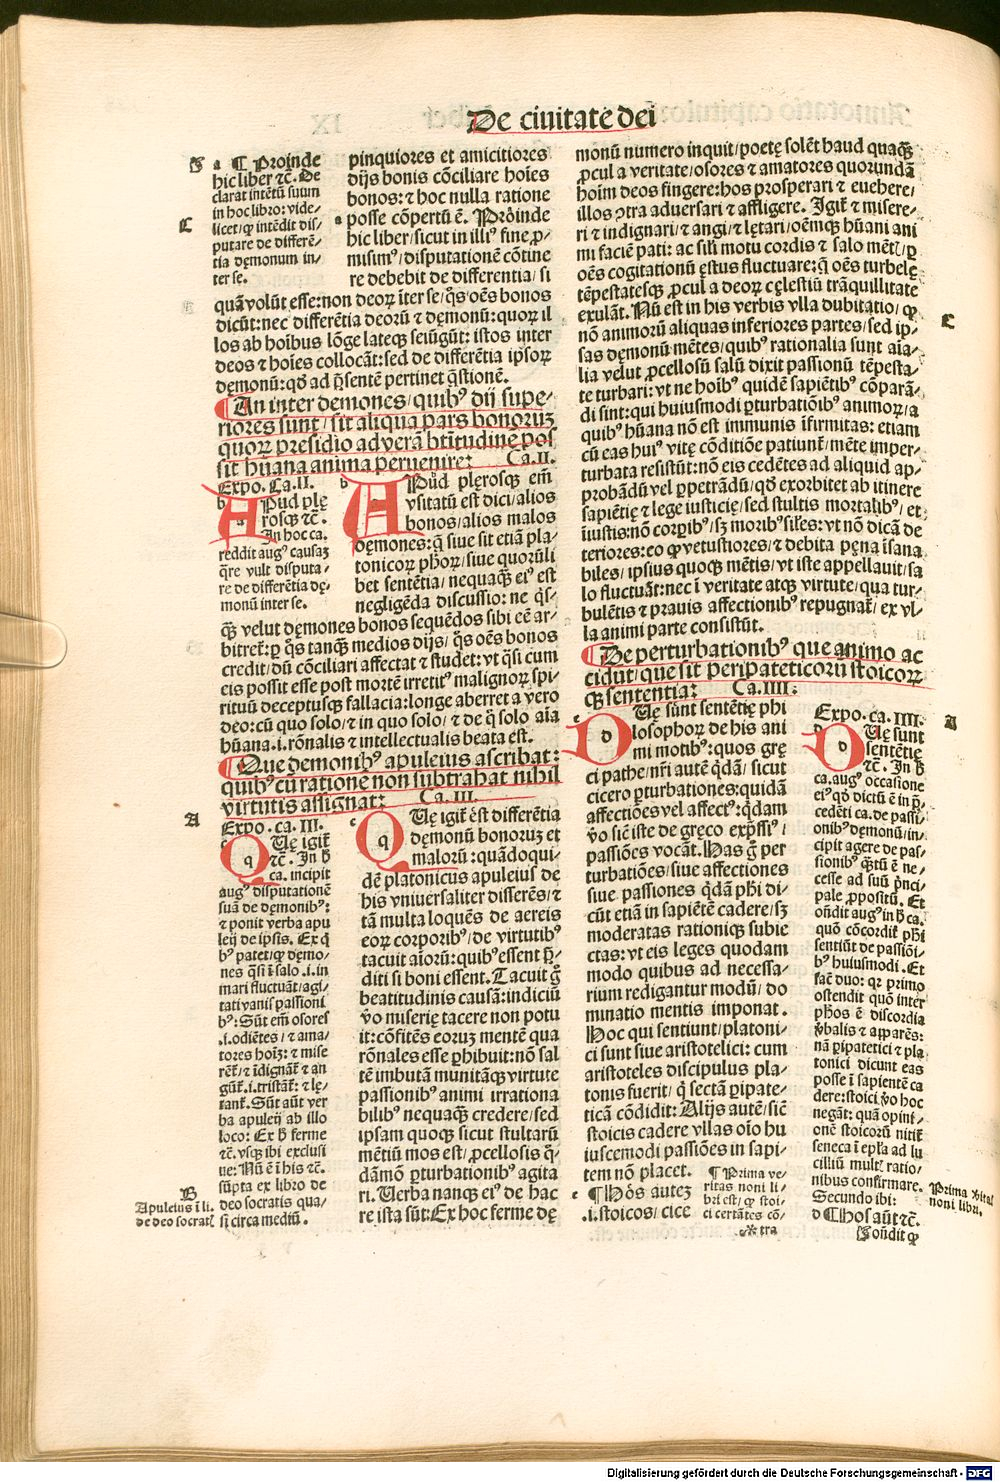 De ciuitate dei
a ¶ Proinde
hic liber ⁊c̄. De
clarat intētū suum
in hoc libro: vide/
licet/ꝙ intēdit dis/
putare de differē/
tia dęmonum in/
ter se.
pinquiores et amicitiores
dijs bonis cōciliare hoīes
bonos: ⁊ hoc nulla ratione
posse cōpertū ē. Proinde
hic liber/sicut in illiꝰ fine ꝓ/
misimꝰ/disputationē cōtine
re debebit de differentia/si
quā volūt esse: non deoꝝ īter se/q̄s oēs bonos
dicūt: nec differētia deorū ⁊ dęmonū: quoꝝ il
los ab hoībus lōge lateqꝫ seiūgūt: istos inter
deos ⁊ hoīes collocāt: sed de differētia ipsoꝝ
dęmonū: qd̄ ad p̄sentē pertinet q̄stionē.
¶ An inter demones/quibꝰ dij supe/
riores sunt/sit aliqua pars bonoruꝫ
quoꝝ presidio ad verā btītudinē pos
sit hūana anima peruenire: Ca. II.
Expo. Ca. II.
b APud plę
rosqꝫ ⁊c̄.
In hoc ca.
reddit augꝰ causaꝫ
q̄re vult disputa/
re de differētia dę/
monū inter se.
b APud plęrosqꝫ em̄
vsitatū est dici/alios
bonos/alios malos
dęmones: q̄ siue sit etiā pla/
tonicoꝝ ph̄oꝝ/siue quorūli
bet sentētia/nequaꝗ̄ eiꝰ est
negligēda discussio: ne q̄s/
ꝗ̄ velut dęmones bonos sequēdos sibi eē ar/
bitret̄: ꝑ q̄s tanꝗ̄ medios dijs/q̄s oēs bonos
credit/dū cōciliari affectat ⁊ studet: vt q̄si cum
eis possit esse post mortē irretitꝰ malignoꝝ spi/
rituū deceptusqꝫ fallacia: longe aberret a vero
deo: cū quo solo/⁊ in quo solo/⁊ de q̄ solo aīa
hūana .i. rōnalis ⁊ intellectualis beata est.
¶ Que demonibꝰ apuleius ascribat:
quibꝰ cū ratione non subtrahat nihil
virtutis assignat: Ca. III.
A
Expo. ca. III.
c QUę igit̄
⁊c̄. In h̄
ca. incipit
augꝰ disputationē
suā de dęmonibꝰ:
⁊ ponit verba apu
leij de ipsis. Ex q̄
bꝰ patet/ꝙ dęmo/
nes q̄si ī salo .i. in
mari fluctuāt/agi/
tati vanis passioni
bꝰ: Sūt em̄ osores
.i. odiētes/⁊ ama/
tores hoīꝫ: ⁊ mise
rēt̄/⁊ īdignāt̄ ⁊ an
gūt̄ .i. tristāt̄: ⁊ lę/
tant̄. Sūt aūt ver
ba apuleij ab illo
loco: Ex h̄ ferme
⁊c̄. vsqꝫ ibi exclusi
ue: Nū ē ī his ⁊c̄.
sūpta ex libro de
deo socratis qua/
si circa mediū.
B
Apuleius ī li.
de deo socrat̄.
c QUę igit̄ ēst differētia
dęmonū bonoruꝫ et
malorū: quādoqui/
dē platonicus apuleius de
his vniuersaliter differēs/⁊
tā multa loquēs de aereis
eoꝝ corporibꝰ/de virtutibꝰ
tacuit aīorū: quibꝰ essent p̄/
diti si boni essent. Tacuit g̊
beatitudinis causā: indiciū
v̊o miserię tacere non potu
it: cōfitēs eoruꝫ mentē qua
rōnales esse ꝑhibuit: nō sal
tē imbutā munitāqꝫ virtute
passionibꝰ animi irrationa
bilibꝰ nequaꝗ̄ credere/sed
ipsam quoqꝫ sicut stultarū
mētiū mos est/ꝓcellosis q̄/
dāmō ꝑturbationibꝰ agita
ri. Verba nanqꝫ eiꝰ de hac
re ista sūt: Ex hoc ferme dę
monū numero inquit/poetę solēt haud quaꝗ̄
ꝓcul a veritate/osores ⁊ amatores quorundā
hoīm deos fingere: hos prosperari ⁊ euehere/
illos ↄtra aduersari ⁊ affligere. Igit̄ ⁊ misere/
ri ⁊ indignari/⁊ angi/⁊ lętari/oēmqꝫ hūani ani
mi faciē pati: ac sil̄i motu cordis ⁊ salo mētꝭ/ꝑ
oēs cogitationū ęstus fluctuare: q̄ oēs turbelę
tēpestatesqꝫ ꝓcul a deoꝝ cęlestiū trāquillitate
exulāt. Nū est in his verbis vlla dubitatio/ꝙ
nō animorū aliquas inferiores partes/sed ip/
sas dęmonū mētes/quibꝰ rationalia sunt aīa/
lia velut ꝓcellosū salū dixit passionū tēpesta/
te turbari: vt ne hoībꝰ quidē sapiētibꝰ cōparā/
di sint: qui huiusmodi ꝑturbatiōibꝰ animoꝝ/a
quibꝰ hūana nō est immunis īfirmitas: etiam
cū eas huiꝰ vitę cōditiōe patiunt̄/mēte imper/
turbata resistūt: nō eis cedētes ad aliquid ap/
probādū vel ꝑpetrādū/qd̄ exorbitet ab itinere
sapiētię ⁊ lege iusticię/sed stultis mortalibꝰ/et
iustis: nō corꝑibꝰ/sꝫ moribꝰ sil̄es: vt nō dicā de
teriores: eo ꝙ vetustiores/⁊ debita pęna īsana
biles/ipsius quoqꝫ mētis/vt iste appellauit/sa
lo fluctuāt: nec ī veritate atqꝫ virtute/qua tur/
bulētis ⁊ prauis affectionibꝰ repugnat̄/ex vl/
la animi parte consistūt.
C
¶ De perturbationibꝰ que animo ac
cidūt/que sit peripateticorū stoicoꝝ
qꝫ sententia: Ca. IIII:
DUę sūnt sentētię phi
losophoꝝ de his ani
mi motibꝰ: quos gręci
ci pathe/nr̄i autē q̄dā/sicut
cicero ꝑturbationes: quidā
affectiōes vel affectꝰ: q̄dam
v̊o siē iste de gręco exp̄ssiꝰ/
passiōes vocāt. Has g̊ per
turbatiōes/siue affectiones
siue passiones q̄dā ph̄i di/
cūt etiā in sapiētē cadere/sꝫ
moderatas rationiqꝫ subie
ctas: vt eis leges quodam
modo quibus ad necessa/
rium redigantur modū/do
minatio mentis imponat.
Hoc qui sentiunt/platoni/
ci sunt siue aristotelici: cum
aristoteles discipulus pla/
tonis fuerit/q̄ sectā ꝑipate/
ticā cōdidit: Alijs autē/siē
stoicis cadere vllas oīo hu
iuscemodi passiōes in sapi/
tem nō placet.
e ¶ Hōs auteꝫ
.i. stoicos/cice
¶ Prima ve/
ritas noni li/
bri est/ꝙ stoi/
ci certātes cō/
tra
Expo. ca. IIII.
A
d DUę sunt
sentētię
⁊c̄. In h̄
ca. augꝰ occasione
eiꝰ qd̄ dictū ē in p̄/
cedēti ca. de passi/
onibꝰ dęmonū/in/
cipit agere de pas/
sionibꝰ q̄tū ē ne/
cesse ad suū p̄nci/
pale ꝓpositū. Et
oñdit augꝰ in h̄ ca.
quō cōcordēt ph̄i
sentiūt de passiōi/
bꝰ huiusmodi. Et
facit duo: qꝛ primo
ostendit quō inter
ph̄os ē discordia
v̄balis ⁊ apparēs:
nā ꝑipatetici ⁊ pla
tonici dicunt eas
posse ī sapientē ca
dere: stoici v̊o hoc
negāt: quā opini/
onē stoicorū nitit̄
seneca ī ep̄la ad lu
cilliū multꝭ ratio/
nibus confirmare.
Secundo ibi:
d ¶ Hos aūt ⁊c̄.
oñdit ꝙ
Prima v̄itas
noni libri.
Digitalisierung gefördert durch die Deutsche Forschungsgemeinschaft - DFG